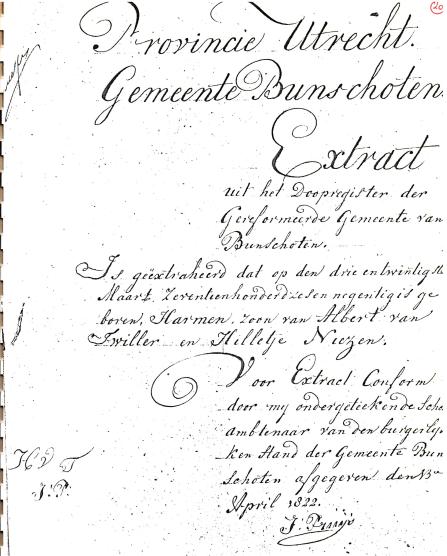 20
Provincie Utrecht.
Gemeente Bunschoten.
Extract
uit het Doopregister der
Gereformeerde Gemeente van
Bunschoten.
Is geëxtraheerd dat op den drie entwintigst
Maart, Zeventeenhonderdzesennegentig is ge
boren, Harmen, zoon van Albert van
Twiller en Hilletje Niezen.
Voor Extract Conform
door my ondergetekende Scha
ambtenaar van den burgerlyk
ken Stand der Gemeente Bun
schoten afgegeven den 13en
April 1822.
H V T